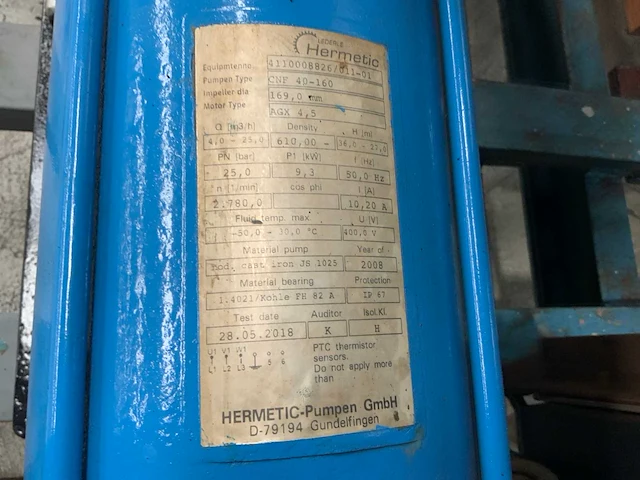 LEDERLE
Hermetic
Equipmentno. 4110008826/011-01
Pumpen Type CNF 40-160
Impeller dia 169,0 mm
Motor Type AGX 4,5
Q [m3/h] Density H [m]
4,0 - 25,0 610,00 -
PN [bar] P1 [kW] f [Hz]
25,0 9,3 50,0 Hz
n [1/min] cos phi I [A]
2.780,0 10,20 A
Fluid temp. max U [V]
-50,0 - 30,0 °C 400,0 V
Material pump Year of
nod. cast iron JS 1025 2008
Material bearing Protection
1.4021/Kohle FH 82 A IP 67
Test date Auditor Isol.Kl.
28.05.2018 K H
U1 V1 W1
L1 L2 L3 5 6
PTC thermistor
sensors.
Do not apply more
than
HERMETIC-Pumpen GmbH
D-79194 Gundelfingen